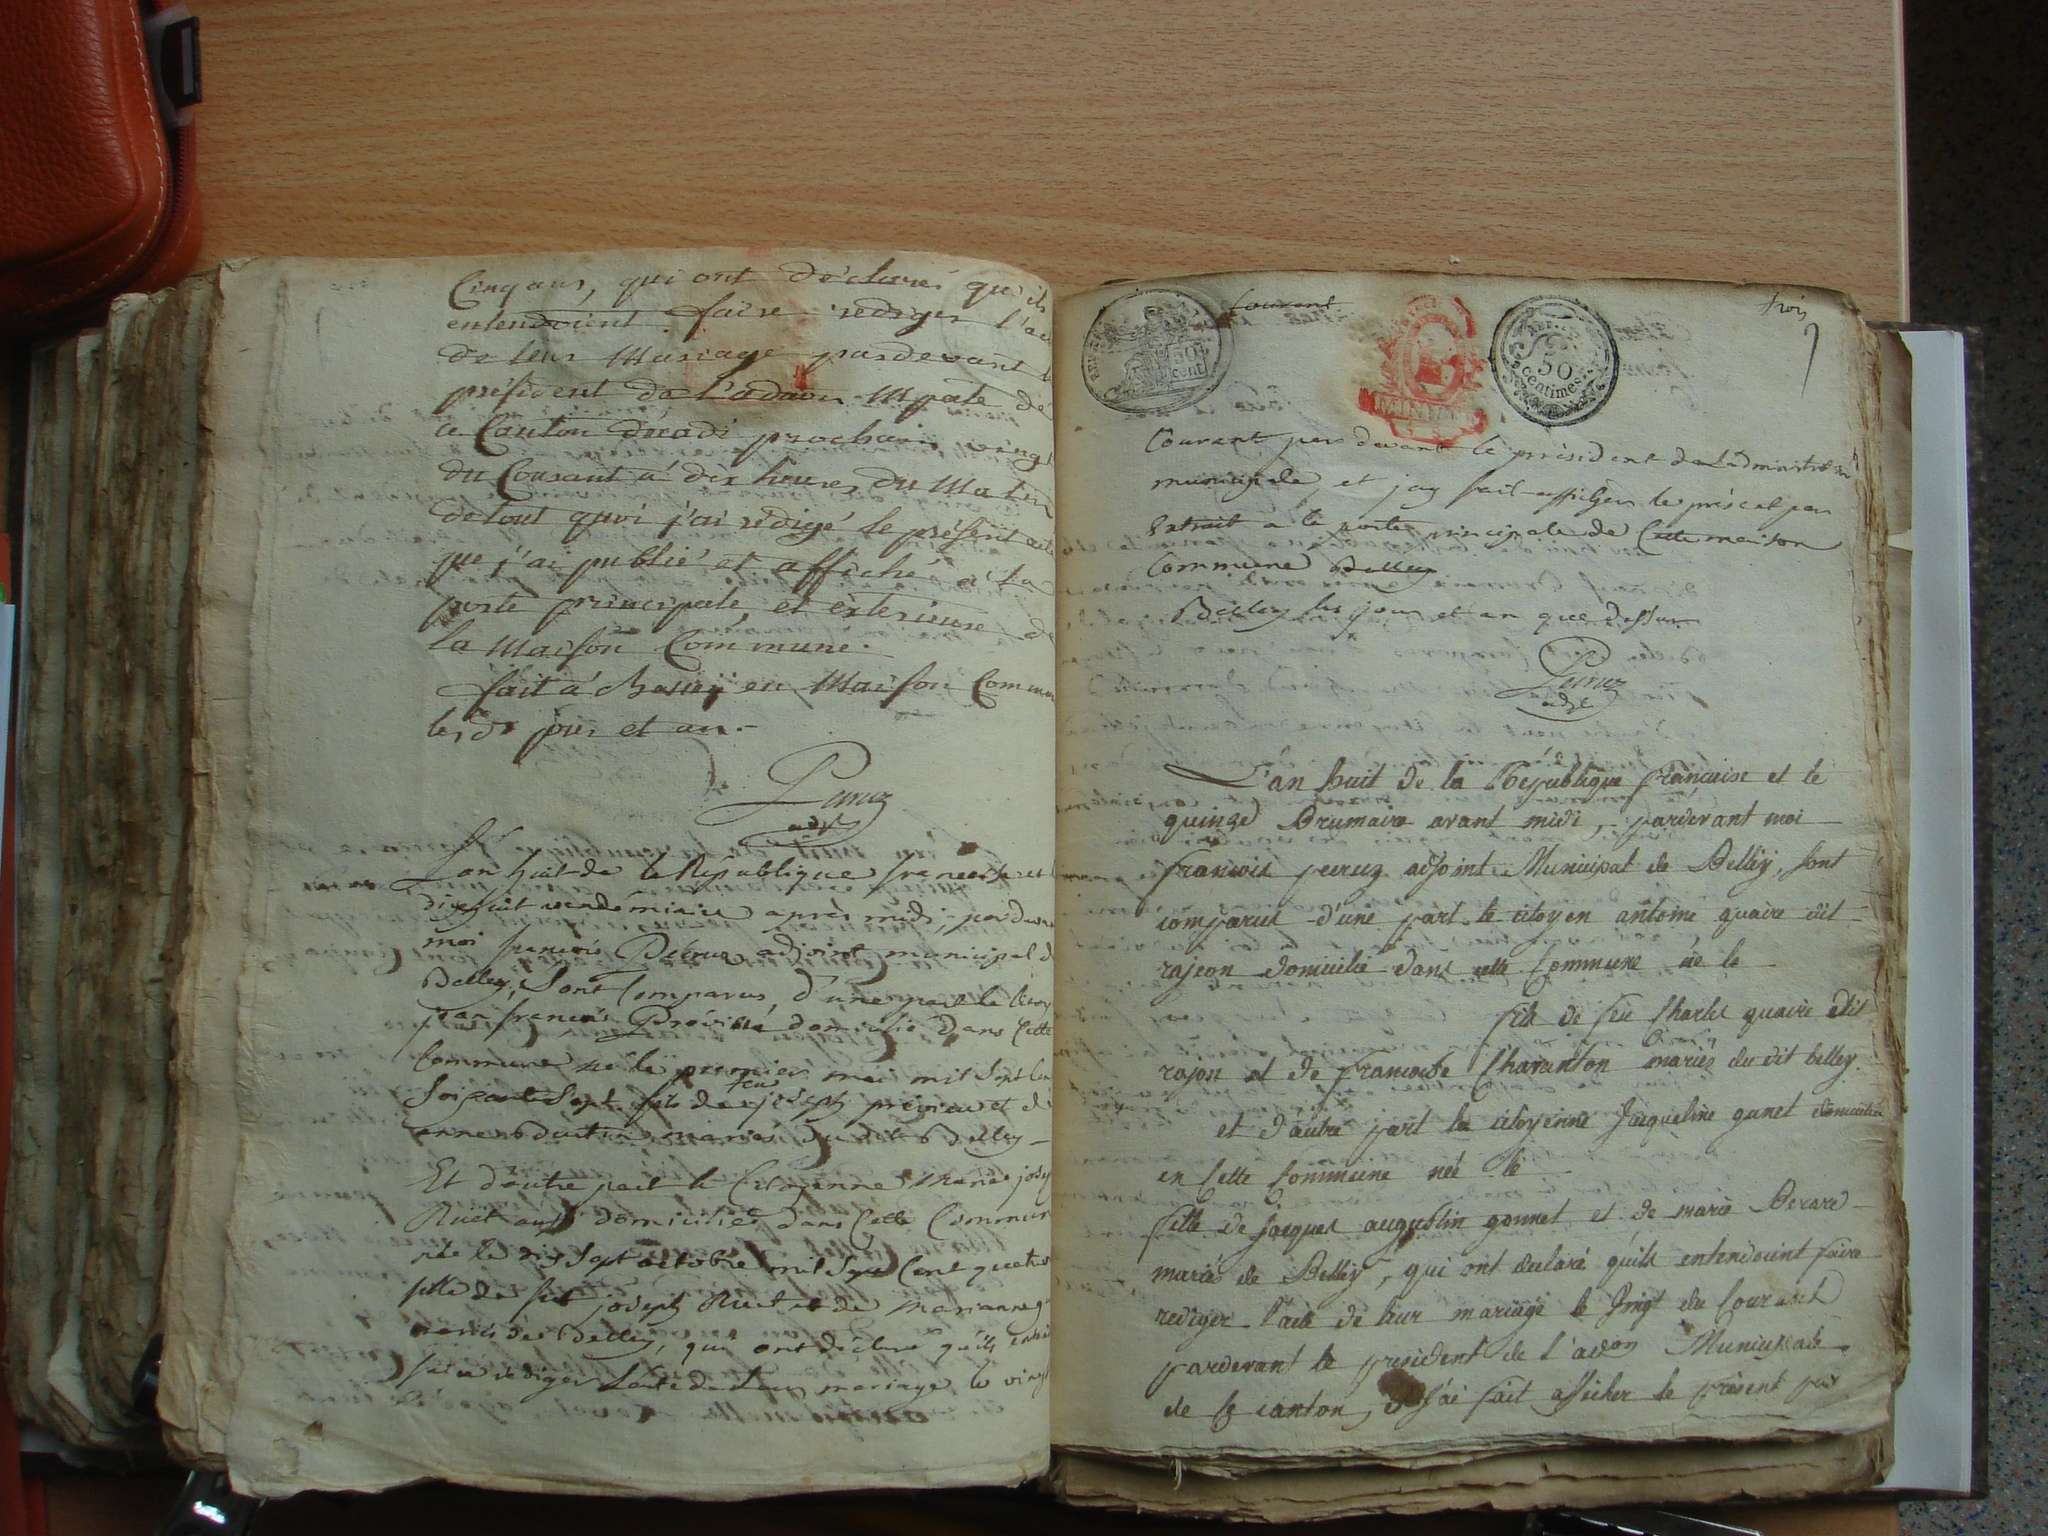 Cinq ans, qui ont déclarés qu'ils
entendoient faire rediger l'acte
de leur Mariage pardevant le
président de l'adaon Mpale de
ce Canton décadi prochain vingt
du Courant à dix heures du Matin
de tout quoi j'ai rédigé le présent acte
que j'ai publié et affiché à la
porte principale, et exterieure de
la Maison Commune.
fait à en Maison Commune
les dts jour et an.-
Peruz
adjt
L'an huit de la République francaise et le
dixhuit vendemiaire après midi, pardevant
moi francois Peruz adjoint municipal de
Belley, Sont Comparus, d'une part le Citoy
jean francois domicilié dans Cette
Commune né le premier mai mil Sept Cent
Soixante Sept fils de feu joseph et de
anne mariés du dit Belley
Et d'autre part la Citoyenne Marie josep
Ruet aussi domiciliée dans Cette Commune
née le dix Sept octobre mil Sept Cent quatre
fille de feu joseph Ruet et de Marianne
mariés de Belley, qui ont déclaré qu'ils
faire rediger l'acte de Leur mariage le vingt
Courant
trois
REP. FRA.
50
cent
REP. FRA.
50
centimes
Courant par devant le président de Ladministraon
municipale, et jay fait afficher le présent par
Extrait a la porte principale de Cette maison
Commune Belley
Belley les jour et an que dessus
Peruz
adjt
L'an huit de la République française et le
quinze Brumaire avant midi, pardevant moi
francois peruz adjoint Municipal de Belley, sont
comparus d'une part le citoyen antoine quaire dit
rajeon domicilié dans cette Commune né le
fils de feu Charle quaire dit
rajon et de francoise Charanton mariés du dit belley
et d'autre part la citoyenne Jacqueline gunet domiciliée
en Cette Commune née le
fille de Jacques augustin gonnet et de marie Berard
mariés de Belley, qui ont declaré quils entendoient faire
rediger l'acte de leur mariage le vingt du Courant
pardevant le president de l'adon Municipale
de Ce canton, et j'ai fait afficher le présent par